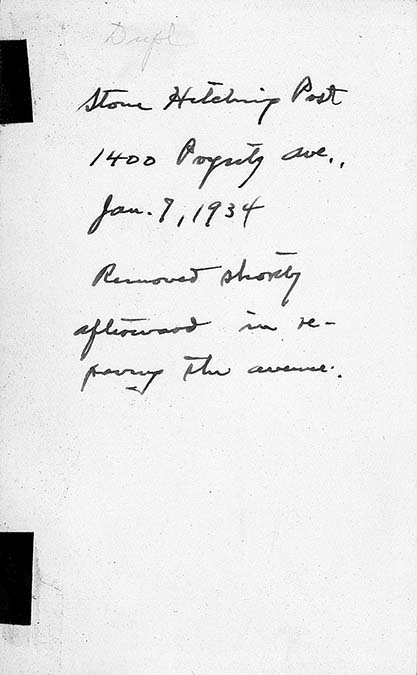 Dupl
Stone Hitching Post
1400 Poyntz ave.,
Jan. 7, 1934
Removed shortly
afterward in re-
paving the avenue.